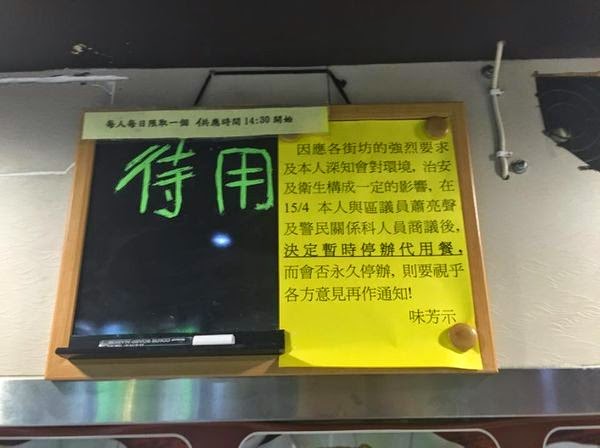 每人每日限取一個 供應時間14:30開始
待用
因應各街坊的強烈要求
及本人深知會對環境, 治安
及衛生構成一定的影響, 在
15/4 本人與區議員蕭亮聲
及警民關係科人員商議後,
決定暫時停辦代用餐,
而會否永久停辦, 則要視乎
各方意見再作通知!
味芳示